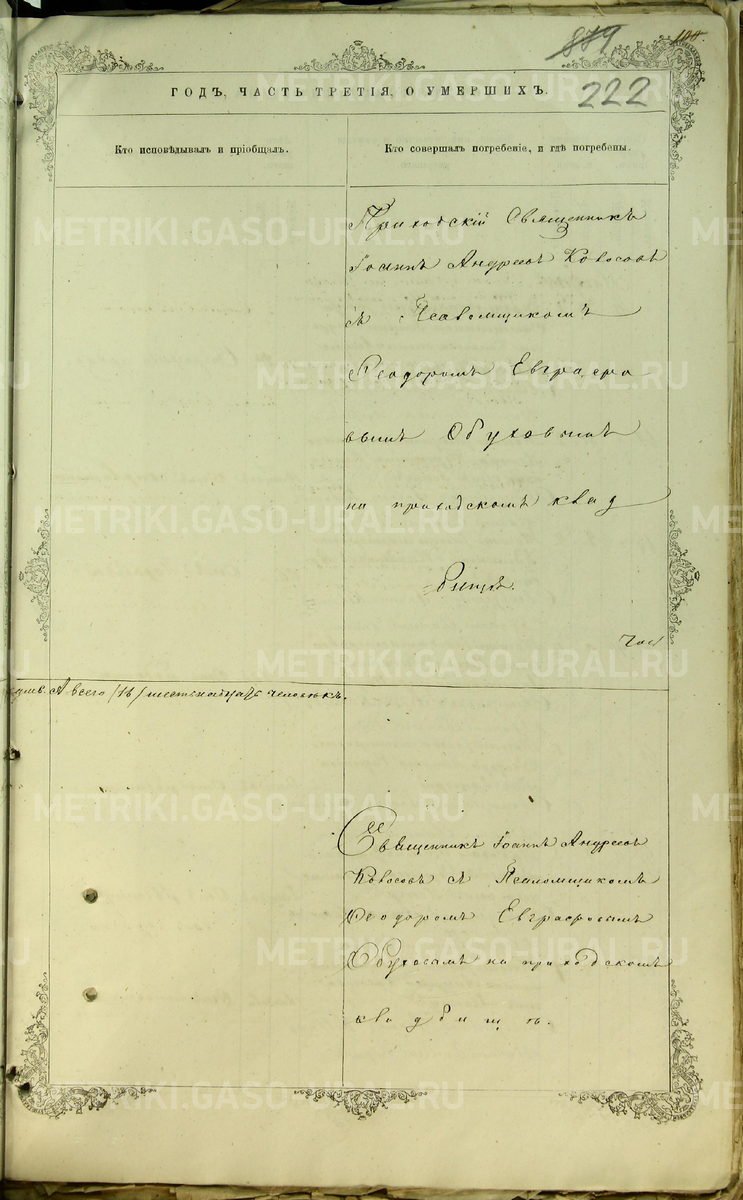 879
104.
222
ГОДЪ, ЧАСТЬ ТРЕТІЯ, О УМЕРШИХЪ.
Кто исповѣдывалъ и пріобщалъ.
Кто совершалъ погребеніе, и гдѣ погребены.
Приходскій Священникъ
Іоаннъ Андреевъ
съ Псаломщикомъ
Ѳеодоромъ Евграфо
вымъ Обуховымъ
на приходскомъ клад
бищѣ.
А всего /16/ шестьнадцать человѣкъ.
Священникъ Іоаннъ Андреевъ
съ Псаломщикомъ
Ѳеодоромъ Евграфовымъ
Обуховымъ на приходскомъ
кладбищѣ.
METRIKI.GASO-URAL.RU